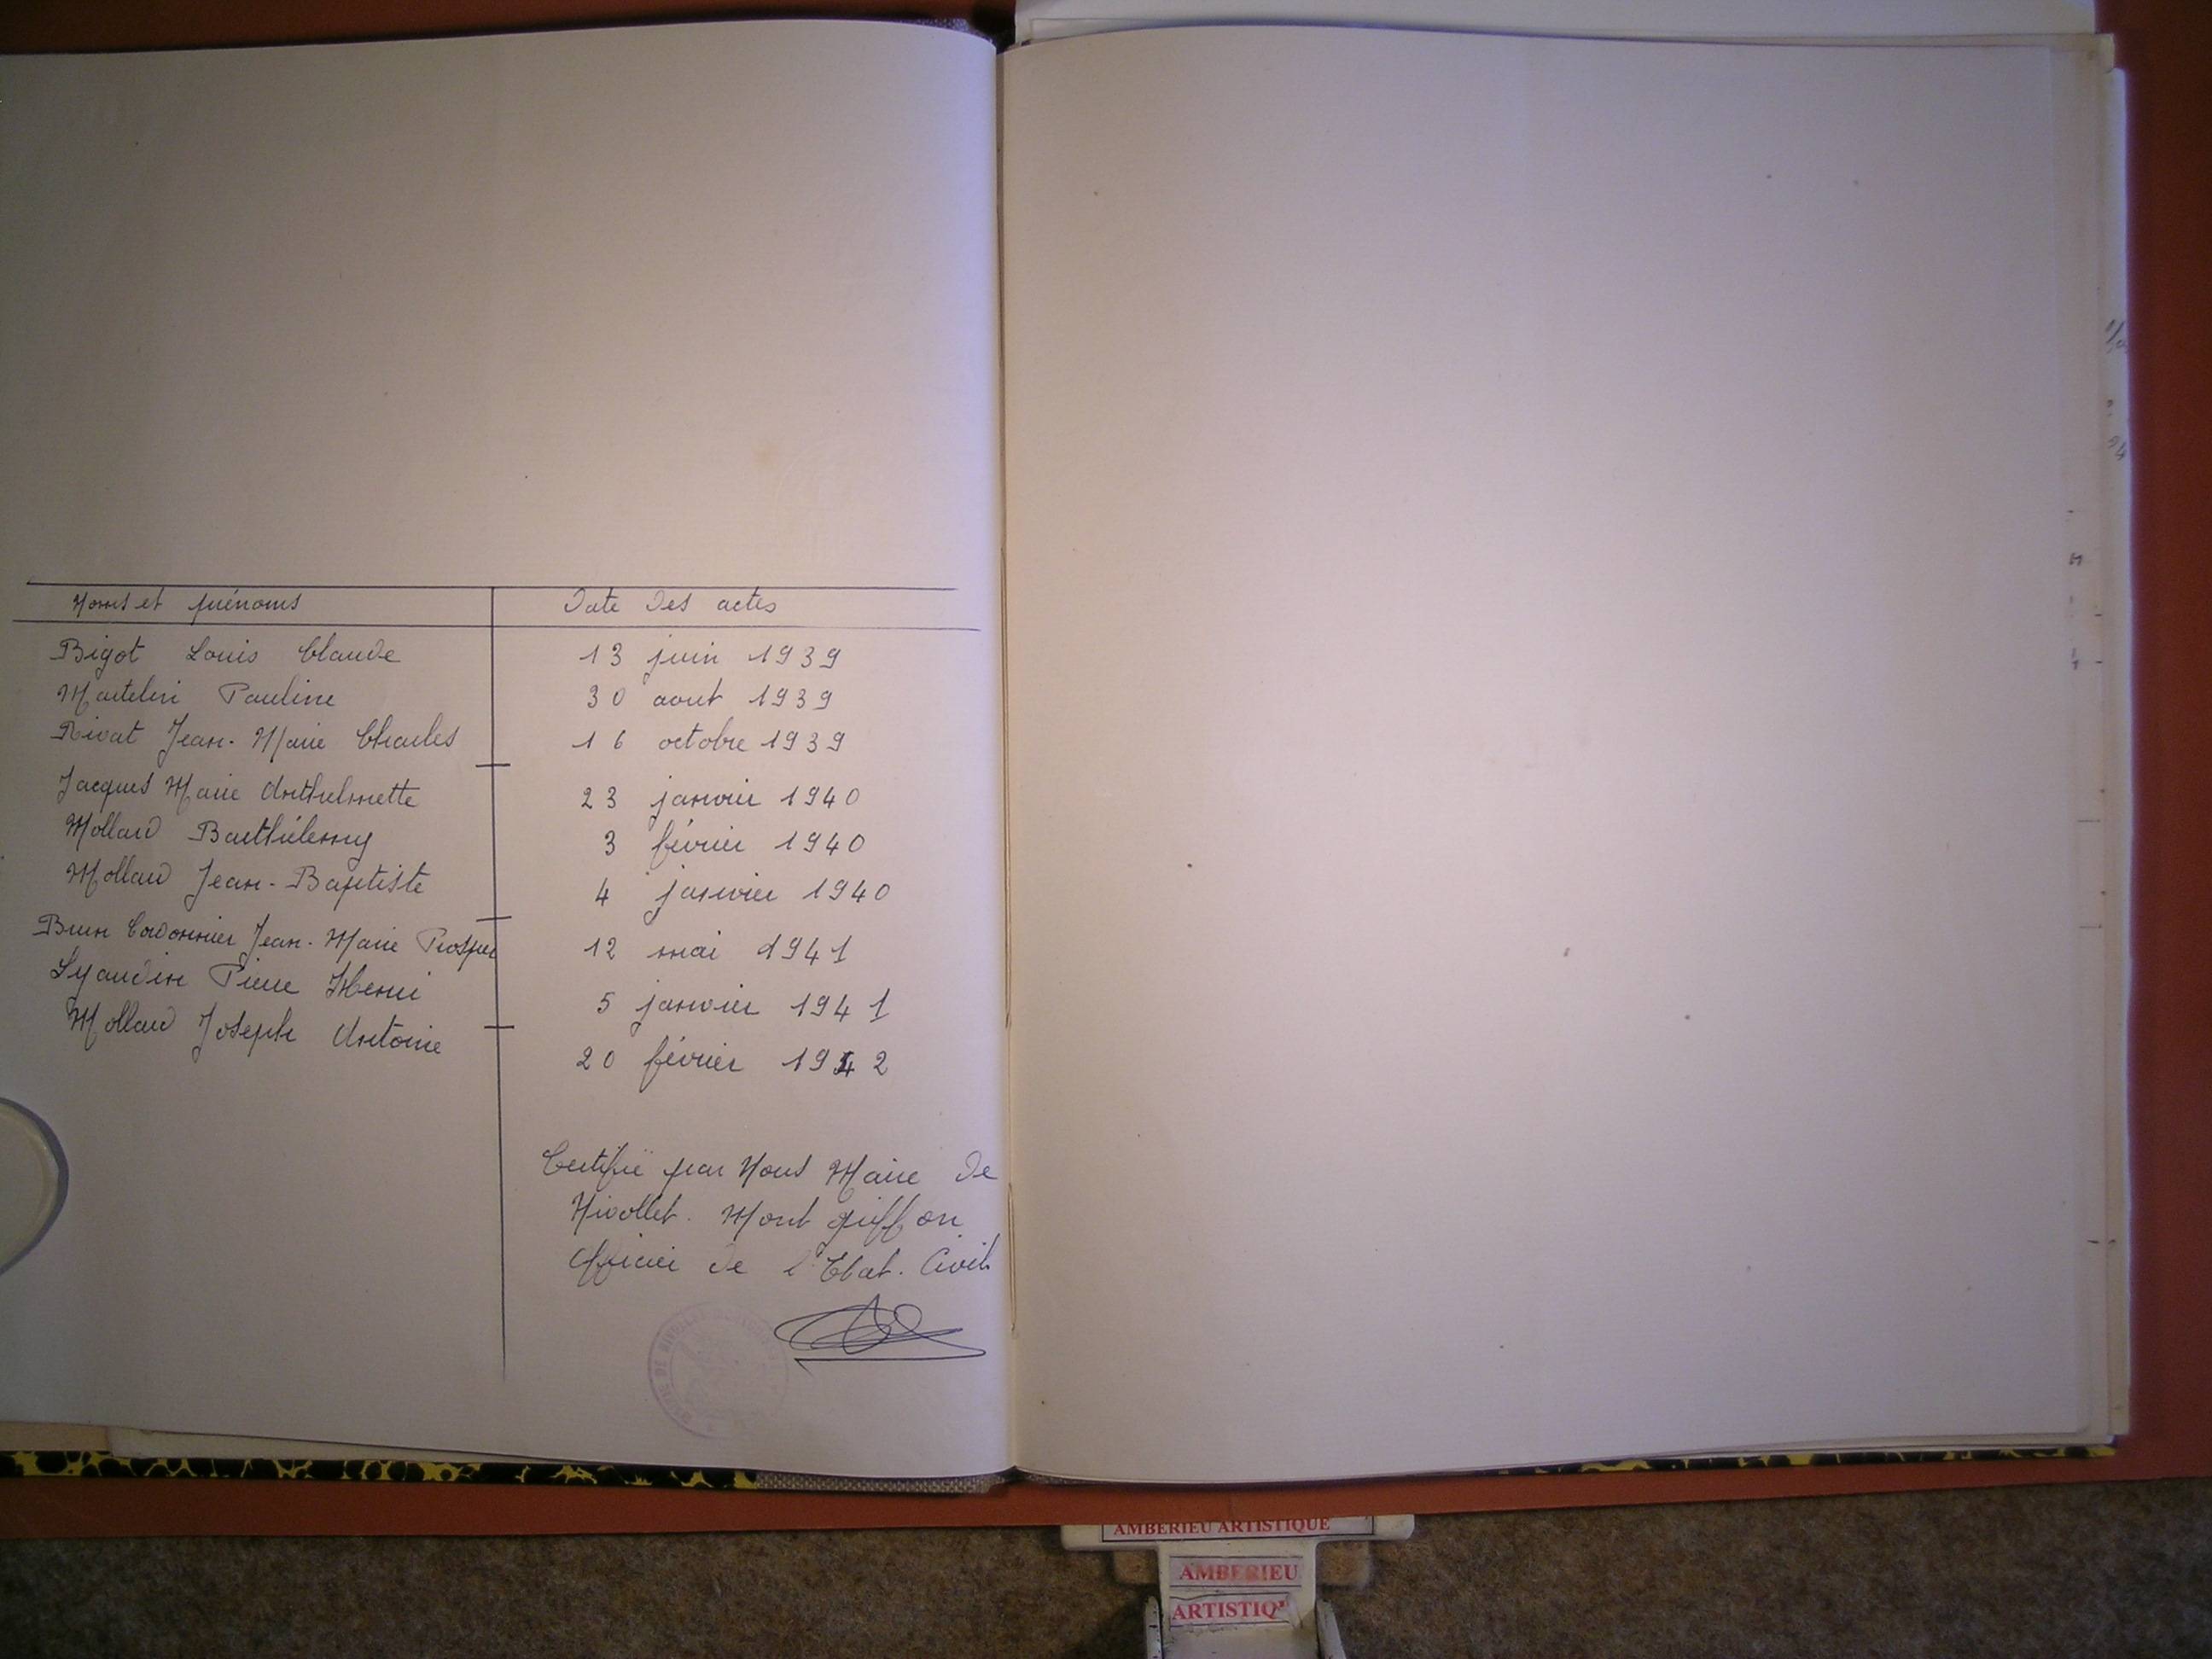 Noms et prénoms Date des actes
Bigot Louis Claude 13 juin 1939
Martelin Pauline 30 aout 1939
Rivat Jean-Marie Charles 16 octobre 1939
Jacques Marie Anthelmette 23 janvier 1940
Mollard Barthélemy 3 février 1940
Mollard Jean-Baptiste 4 janvier 1940
Brun Cordonnier Jean-Marie Prosper 12 mai 1941
Lyaudin Pierre Henri 5 janvier 1941
Mollard Joseph Antoine 20 février 1942
Certifié par Nous Maire de
Nivollet. Montgriffon
Officier de l'Etat. Civil
AMBERIEU ARTISTIQUE
AMBERIEU
ARTISTIQ